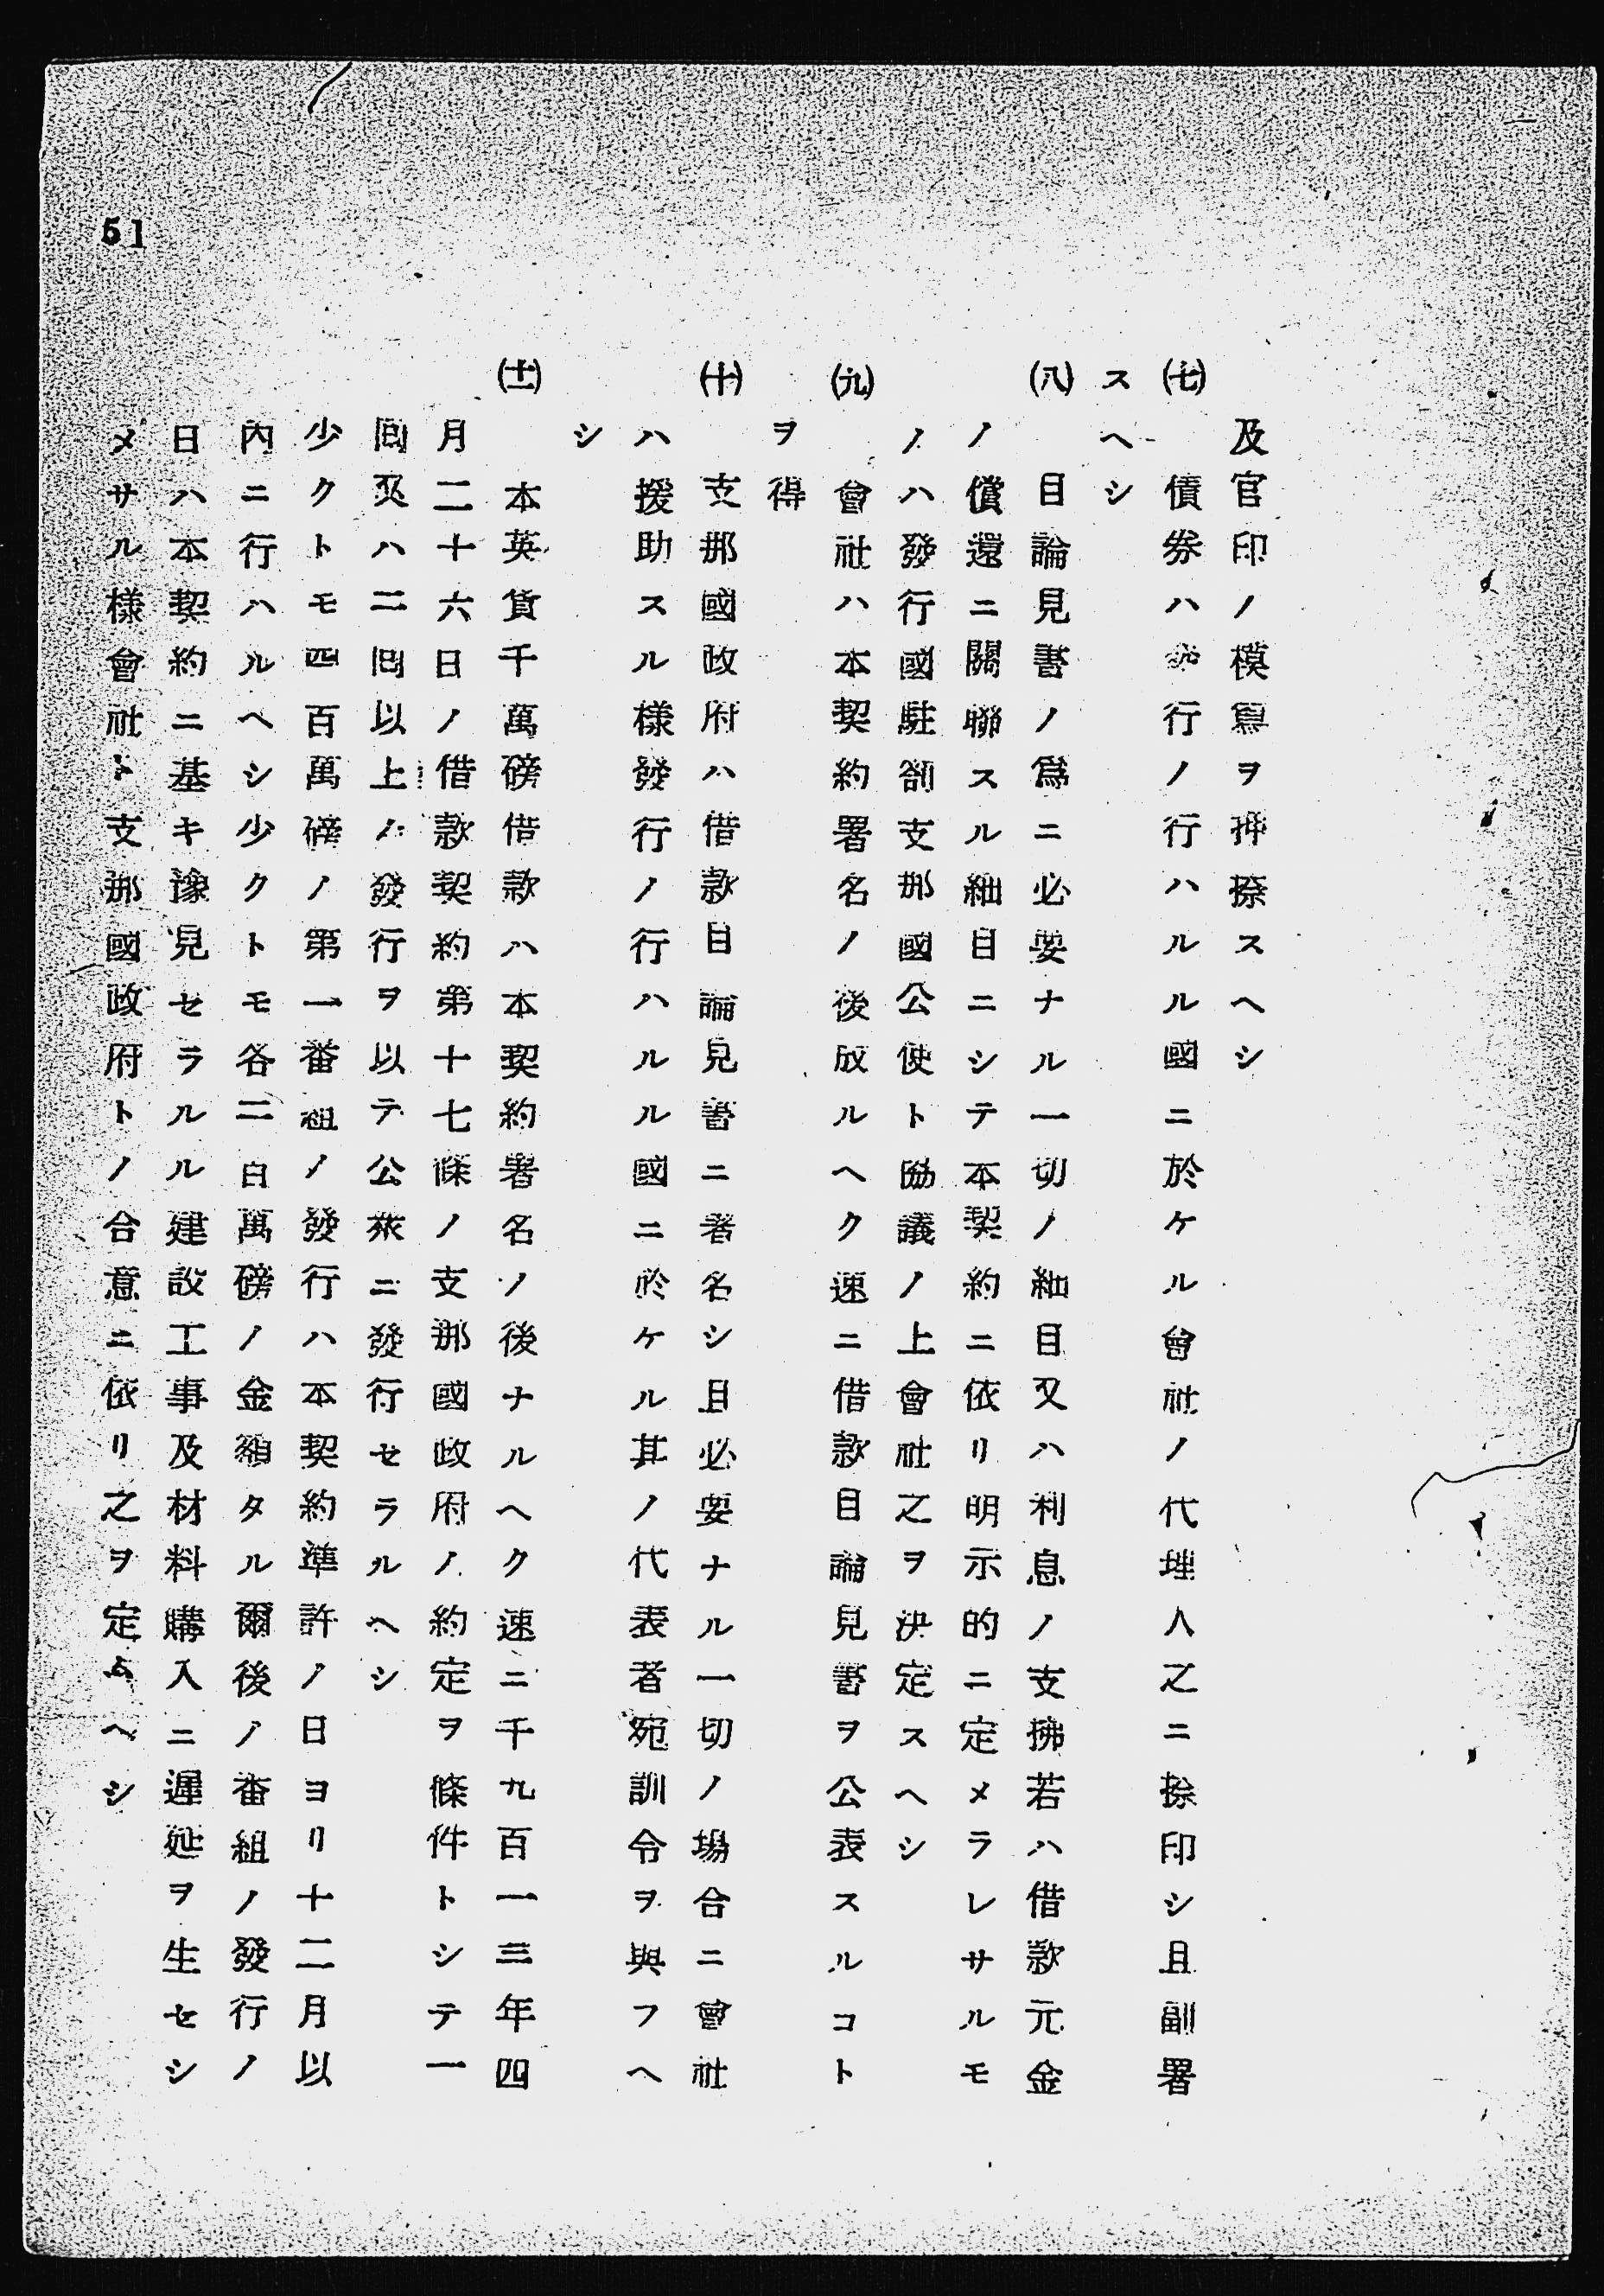 51
及官印ノ模寫ヲ押捺スヘシ
(七)債券ハ發行ノ行ハルル國ニ於ケル會社ノ代理人之ニ捺印シ且副署
スヘシ
(八)目論見書ノ爲ニ必要ナル一切ノ細目又ハ利息ノ支拂若ハ借款元金
ノ償還ニ關聯スル細目ニシテ本契約ニ依リ明示的ニ定メラレサルモ
ノハ發行國駐劄支那國公使ト協議ノ上會社之ヲ決定スヘシ
(九)會社ハ本契約署名ノ後成ルヘク速ニ借款目論見書ヲ公表スルコト
ヲ得
(十)支那國政府ハ借款目論見書ニ署名シ且必要ナル一切ノ場合ニ會社
ハ援助スル樣發行ノ行ハルル國ニ於ケル其ノ代表者宛訓令ヲ與フヘ
シ
(十一)本英貨千萬磅借款ハ本契約署名ノ後ナルヘク速ニ千九百一三年四
月二十六日ノ借款契約第十七條ノ支那國政府ノ約定ヲ條件トシテ一
囘又ハ二囘以上ノ發行ヲ以テ公衆ニ發行セラルヘシ
少クトモ四百萬磅ノ第一番組ノ發行ハ本契約準許ノ日ヨリ十二月以
內ニ行ハルヘシ少クトモ各二百萬磅ノ金額タル爾後ノ番組ノ發行ノ
日ハ本契約ニ基キ豫見セラルル建設工事及材料購入ニ遲延ヲ生セシ
メサル樣會社ト支那國政府トノ合意ニ依リ之ヲ定ムヘシ